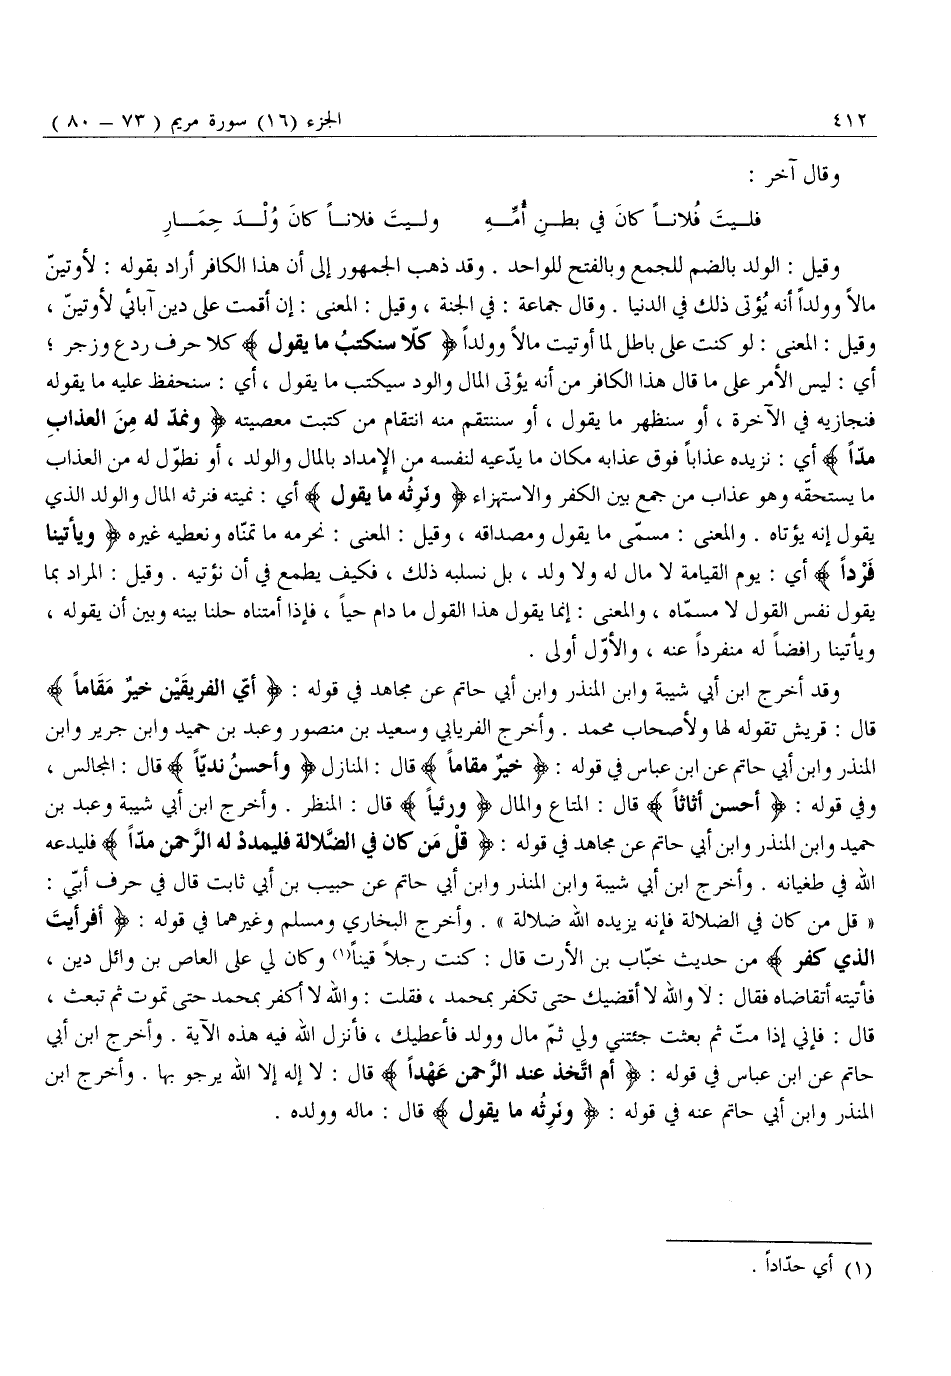 ٤١٢ الجزء (١٦) سورة مريم ( ٧٣ – ٨٠ )
وقال آخر :
فلـيتَ فُلانـاً كانَ في بطـنِ أُمِّـهِ ولـيتَ فلانـاً كانَ وُلْـدَ حِمَـارِ
وقيل : الولد بالضم للجمع وبالفتح للواحد . وقد ذهب الجمهور إلى أن هذا الكافر أراد بقوله : لأوتينّ
مالاً وولداً أنه يُؤتى ذلك في الدنيا . وقال جماعة : في الجنة ، وقيل : المعنى : إن أقمت على دين آبائي لأوتينّ ،
وقيل : المعنى : لو كنت على باطل لما أوتيت مالاً وولداً ﴿ كلّا سنكتبُ ما يقول ﴾ كلا حرف ردع وزجر ؛
أي : ليس الأمر على ما قال هذا الكافر من أنه يؤتى المال والود سيكتب ما يقول ، أي : سنحفظ عليه ما يقوله
فنجازيه في الآخرة ، أو سنظهر ما يقول ، أو سننتقم منه انتقام من كتبت معصيته ﴿ ونمدّ له مِنَ العذابِ
مدّاً ﴾ أي : نزيده عذاباً فوق عذابه مكان ما يدّعيه لنفسه من الإمداد بالمال والولد ، أو نطوّل له من العذاب
ما يستحقّه وهو عذاب من جمع بين الكفر والاستهزاء ﴿ ونَرِثُه ما يقول ﴾ أي : نميته فنرثه المال والولد الذي
يقول إنه يؤتاه . والمعنى : مسمّى ما يقول ومصداقه ، وقيل : المعنى : نحرمه ما تمنّاه ونعطيه غيره ﴿ ويأتينا
فَرْداً ﴾ أي : يوم القيامة لا مال له ولا ولد ، بل نسلبه ذلك ، فكيف يطمع في أن نؤتيه . وقيل : المراد بما
يقول نفس القول لا مسمّاه ، والمعنى : إنما يقول هذا القول ما دام حياً ، فإذا أمتناه حلنا بينه وبين أن يقوله ،
ويأتينا رافضاً له منفرداً عنه ، والأوّل أولى .
وقد أخرج ابن أبي شيبة وابن المنذر وابن أبي حاتم عن مجاهد في قوله : ﴿ أيّ الفريقَيْن خيرٌ مَقَاماً ﴾
قال : قريش تقوله لها ولأصحاب محمد . وأخرج الفريابي وسعيد بن منصور وعبد بن حميد وابن جرير وابن
المنذر وابن أبي حاتم عن ابن عباس في قوله : ﴿ خيرٌ مقاماً ﴾ قال : المنازل ﴿ وأحسنُ نديّاً ﴾ قال : المجالس ،
وفي قوله : ﴿ أحسن أثاثاً ﴾ قال : المتاع والمال ﴿ ورئياً ﴾ قال : المنظر . وأخرج ابن أبي شيبة وعبد بن
حميد وابن المنذر وابن أبي حاتم عن مجاهد في قوله : ﴿ قلْ مَن كان في الضَّلالة فليمددْ له الرَّحمن مدّاً ﴾ فليدعه
الله في طغيانه . وأخرج ابن أبي شيبة وابن المنذر وابن أبي حاتم عن حبيب بن أبي ثابت قال في حرف أبّي :
« قل من كان في الضلالة فإنه يزيده الله ضلالة » . وأخرج البخاري ومسلم وغيرهما في قوله : ﴿ أفرأيتَ
الذي كفر ﴾ من حديث خبّاب بن الأرت قال : كنت رجلاً قيناً(١) وكان لي على العاص بن وائل دين ،
فأتيته أتقاضاه فقال : لا والله لا أقضيك حتى تكفر بمحمد ، فقلت : والله لا أكفر بمحمد حتى تموت ثم تبعث ،
قال : فإني إذا متّ ثم بعثت جئتني ولي ثمّ مال وولد فأعطيك ، فأنزل الله فيه هذه الآية . وأخرج ابن أبي
حاتم عن ابن عباس في قوله : ﴿ أم اتَّخذ عند الرَّحمن عَهْداً ﴾ قال : لا إله إلا الله يرجو بها . وأخرج ابن
المنذر وابن أبي حاتم عنه في قوله : ﴿ ونَرِثُه ما يقول ﴾ قال : ماله وولده .
(١) أي حدّاداً .